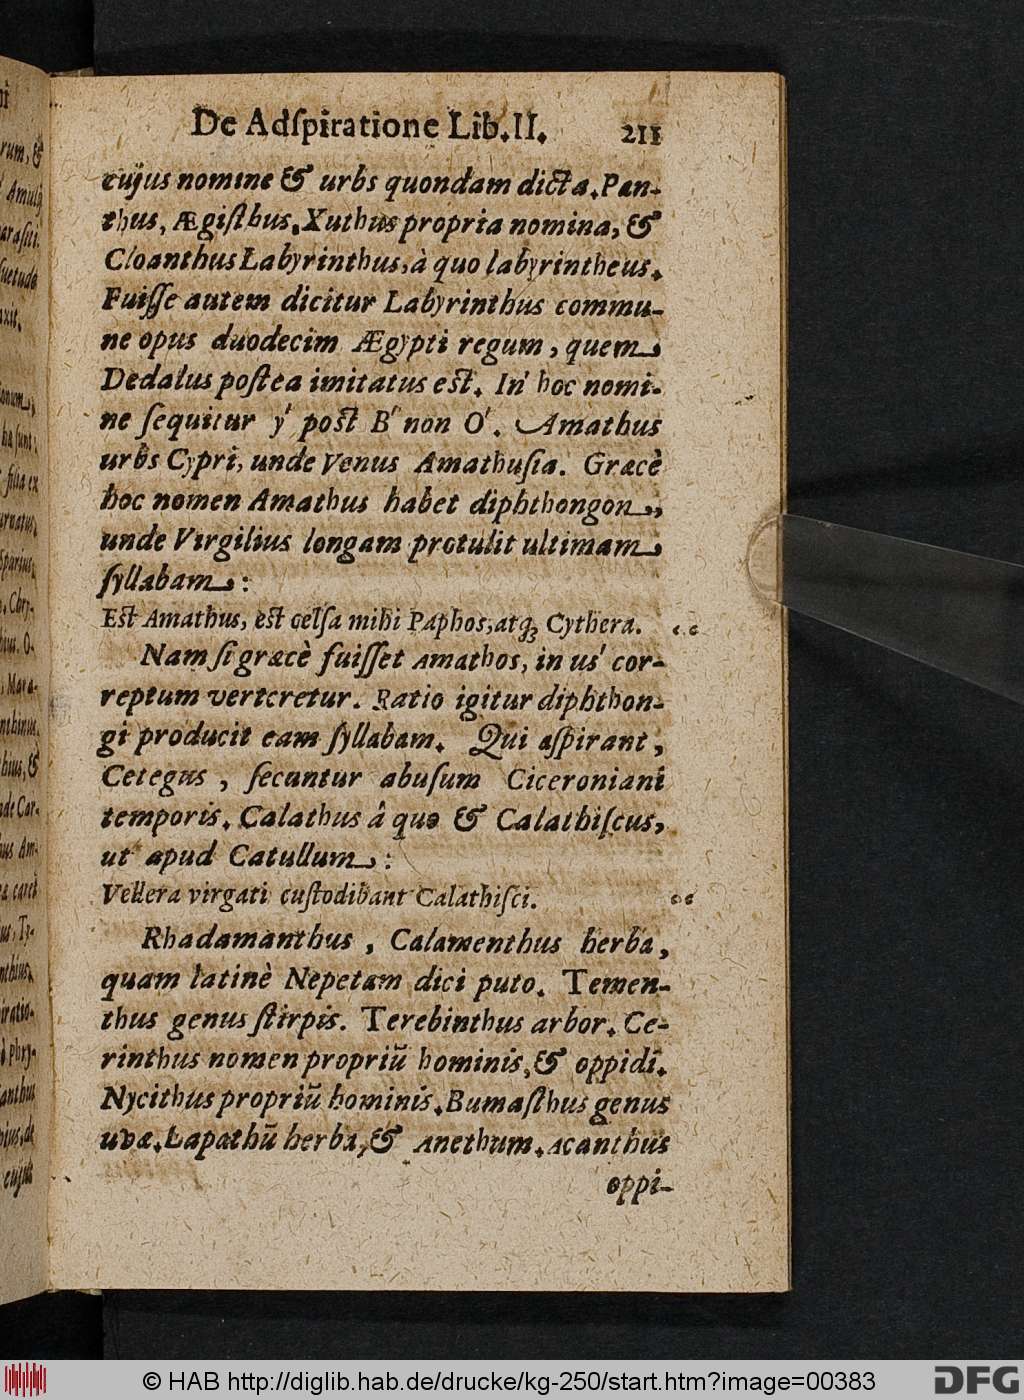 De Adſpiratione Lib. II. 211
cujus nomine & urbs quondam dicta. Pan-
thus, Ægiſthus, Xuthus propria nomina, &
Cloanthus Labyrinthus, à quo labyrintheus.
Fuiſſe autem dicitur Labyrinthus commu-
ne opus duodecim Ægypti regum, quem
Dedalus poſtea imitatus eſt. In' hoc nomi-
ne ſequitur y' poſt B' non O'. Amathus
urbs Cypri, unde Venus Amathuſia. Græcè
hoc nomen Amathus habet diphthongon,
unde Virgilius longam protulit ultimam
ſyllabam:
Eſt Amathus, eſt celſa mihi Paphos, atq; Cythera. „
Nam ſi græcè fuiſſet Amathos, in us' cor-
reptum verteretur. Ratio igitur diphthon-
gi producit eam ſyllabam. Qui aſpirant,
Cetegus, ſecuntur abuſum Ciceroniani
temporis. Calathus â quo & Calathiſcus,
ut apud Catullum:
Vellera virgati cuſtodibant Calathiſci. „
Rhadamanthus, Calamenthus herba,
quam latinè Nepetam dici puto. Temen-
thus genus ſtirpis. Terebinthus arbor. Ce-
rinthus nomen propriũ hominis, & oppidi.
Nycithus propriũ hominis. Bumaſthus genus
uvæ. Lapathũ herba, & Anethum. Acanthus
oppi-
rum, &
Amulſ
paraſiti.
ſuetudo
ha ſunt:
filia ex
Chry-
O-
Mara-
bius, &
nde Car-
Am-
caret
Ty-
iratio-
phry-
canthus
de
cujus
© HAB http://diglib.hab.de/drucke/kg-250/start.htm?image=00383
DFG